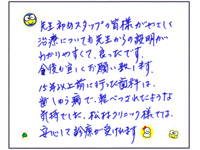 先生初めスタッフの皆様がやさしく
治療についても先生からの説明が
わかりやすくて、良かったです。
今後も宜しくお願い致します。
15年以上前に行った歯科は、
歯しゅう病で、軽べつされたような
気持でした。松村クリニック様では、
安心して診療が受けれます